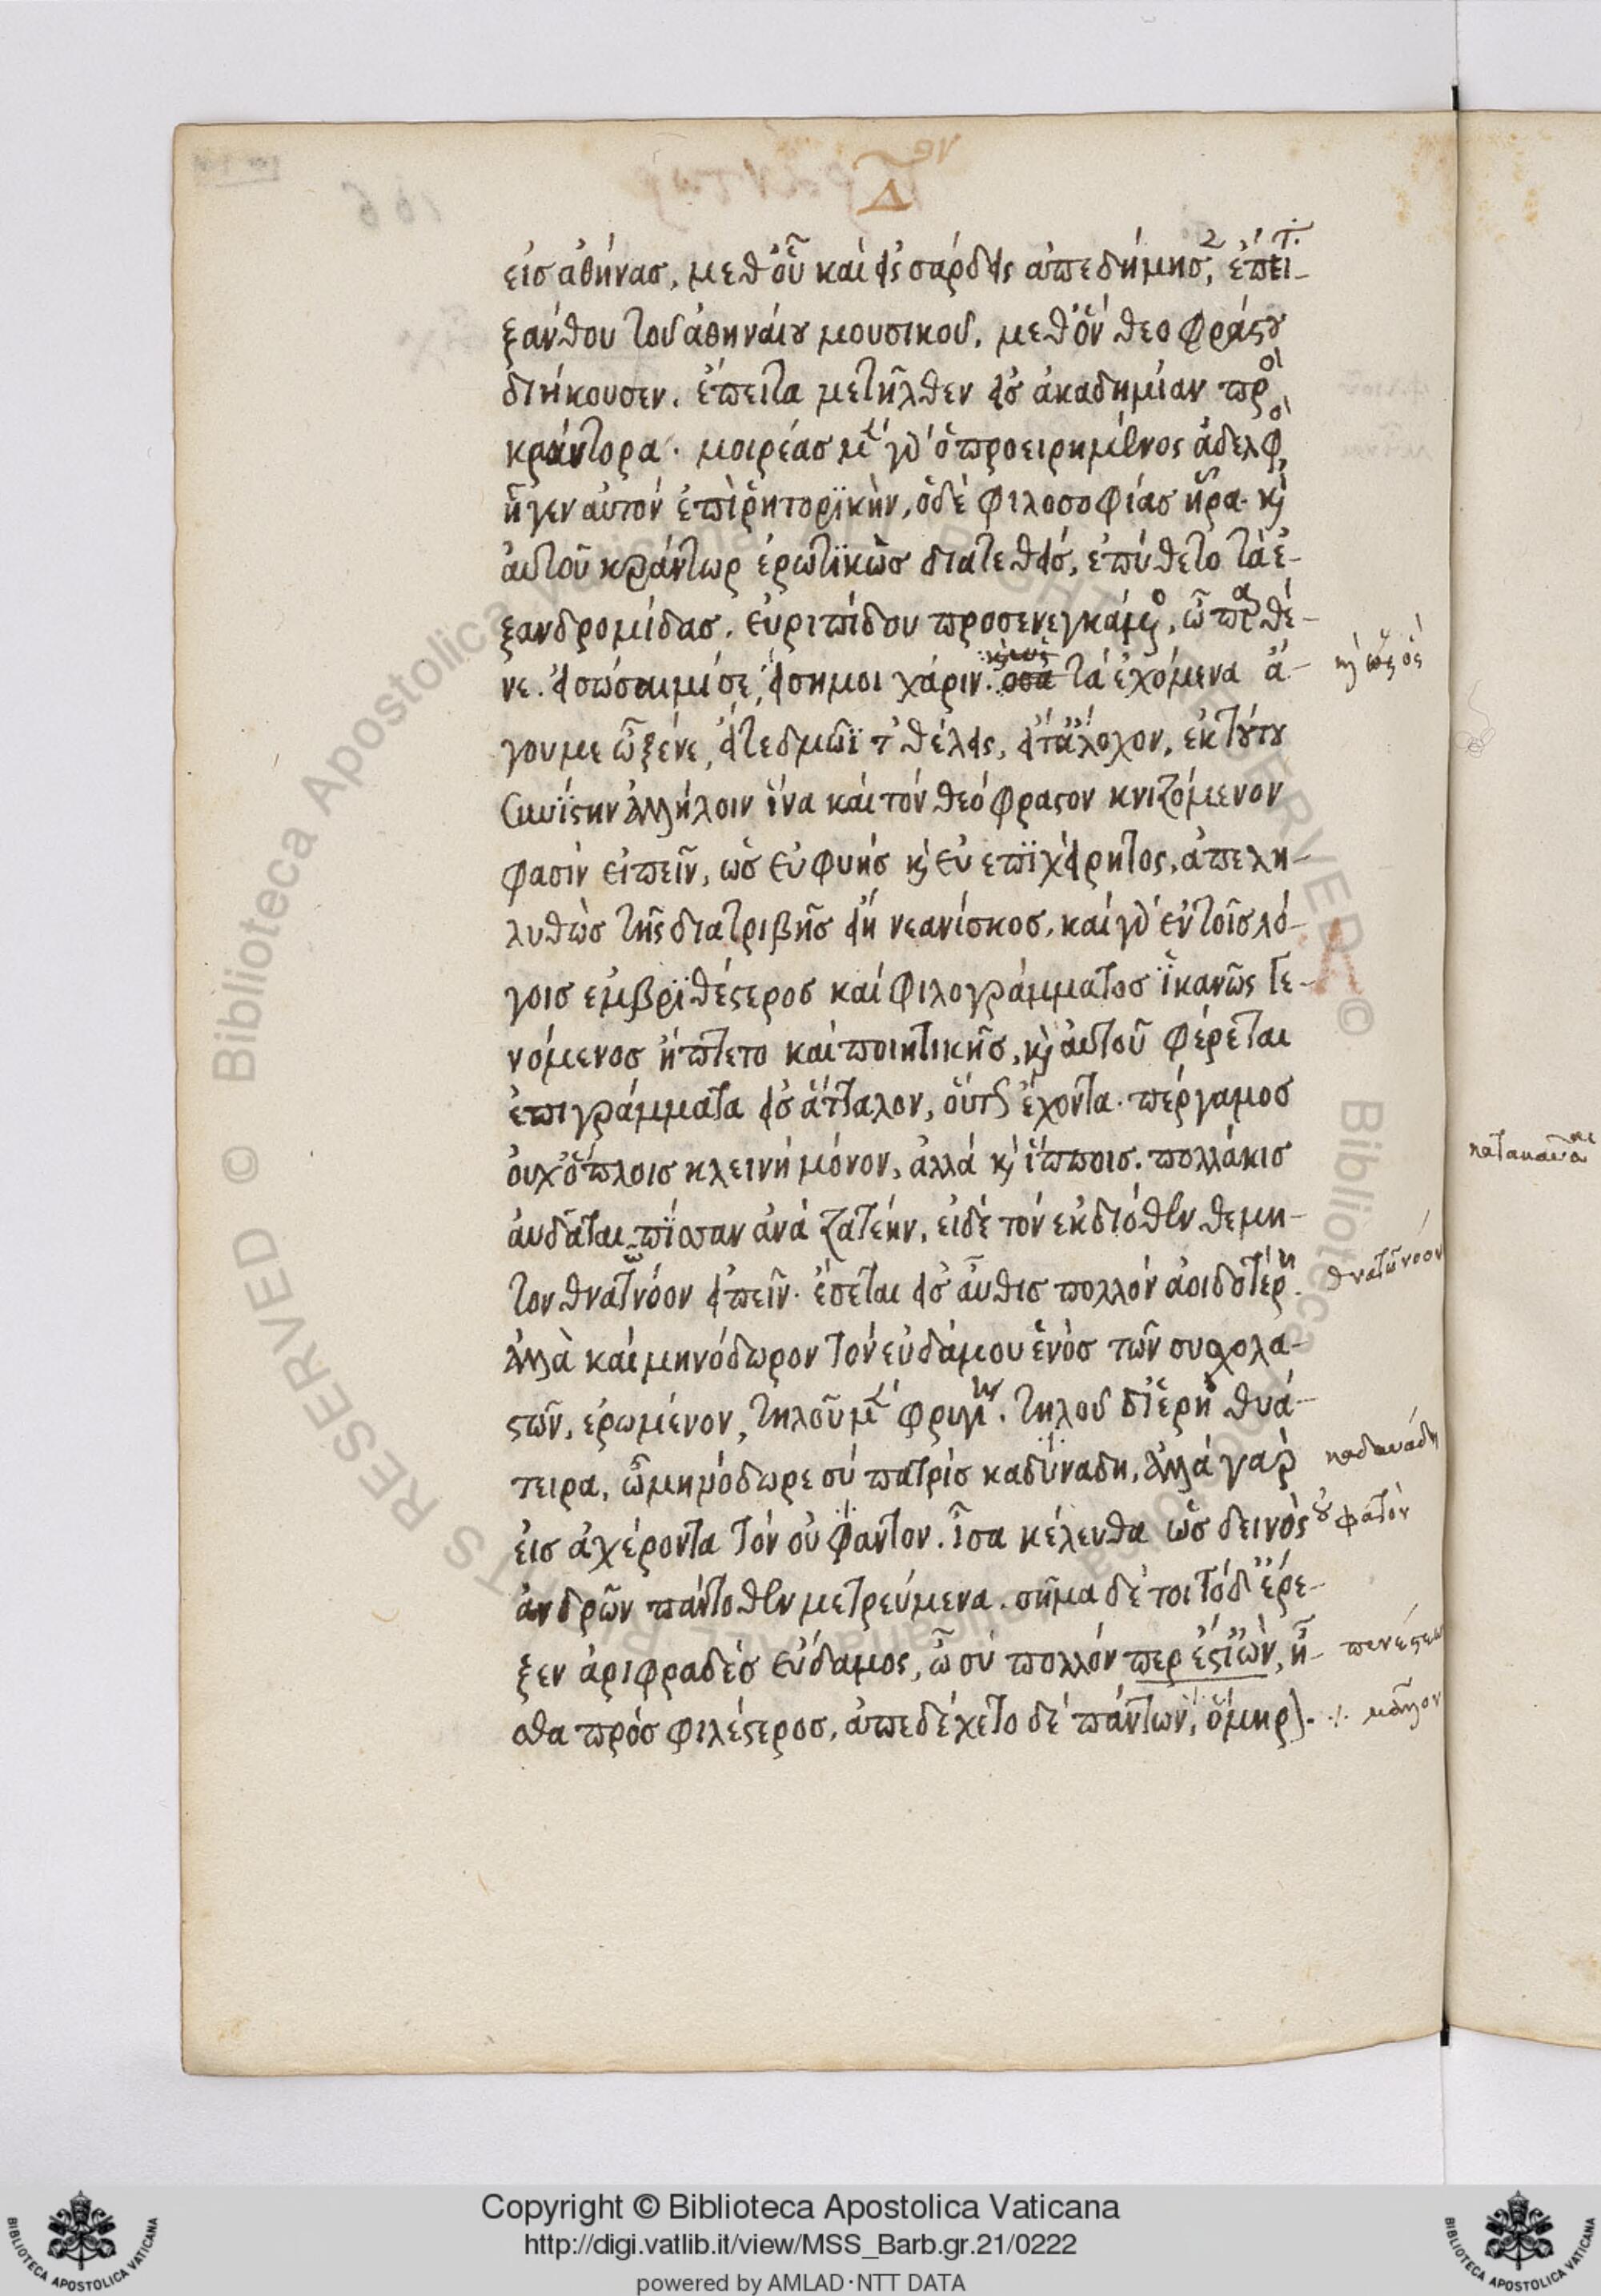 Δ
εἰσ ἀθήνασ, μεθ' οὗ καὶ εἰς σάρδεις ἀπεδήμησ, ἔπει-
ξάνθου τοῦ ἀθηναίου μουσικοῦ, μεθ' ὃν θεοφράστου
διήκουσεν. ἔπειτα μετῆλθεν εἰσ ἀκαδημίαν πρὸ
κράντορα. μοιρέασ μὲ γὰρ ὁ προειρημένος ἀδελφὸ
ἦγεν αὐτὸν ἐπὶ ῥητορϊκὴν, ὁ δὲ φιλοσοφίασ ἤρα. καὶ
αὐτοῦ κράντωρ ἐρωτϊκῶσ διατεθεὶσ, ἐπύθετο τὰ ἐ-
ξανδρομίδασ. εὐριπίδου προσενεγκάμο, ὦ πα θέ-
νε. εἰ σώσαιμί σε, εἴση μοι χάριν. τὰ ἐχόμενα ἄ-
γου με ὦ ξένε, εἴτε δμωῒ θέλεις, εἴτ' ἄλοχον, ἐκ τούτου
ἀλλήλοιν ἵνα καὶ τὸν θεόφραστον κνιζόμενον
φασὶν εἰπεῖν, ὡσ εὐφυὴσ καὶ εὐεπϊχείρητος, ἀπελη-
λυθὼσ τῆς διατριβῆσ εἴη νεανίσκοσ, καὶ γὰρ ἐν τοῖσ λό-
γοισ ἐμβρϊθέστεροσ καὶ φιλογράμματοσ ἱκανῶς γε-
νόμενοσ ἥπτετο καὶ ποιητικῆσ, καὶ αὐτοῦ φέρεται
ἐπιγράμματα εἰσ ἄτταλον, οὕτως ἔχοντα. πέργαμοσ
οὐχ' ὅπλοισ κλεινὴ μόνον, ἀλλὰ καὶ ἵπποισ. πολλάκισ
αὐδᾶται πῖσαν ἀνὰ ζατέην, εἰ δὲ τὸν ἐκ διόθεν θεμη-
τὸν θνατῶ νόον εἰπεῖν. ἔσεται εἰσ αὖθισ πολλὸν ἀοιδοτέρη.
ἀλλὰ καὶ μηνόδωρον τὸν εὐδάμου ἑνὸσ τῶν συσχολα-
στῶν, ἐρωμένον, τηλοῦ μὲ φρυγίη. τηλοῦ δ' ἱερὴ θυά-
τειρα, ὦ μηνόδωρε σὺ πατρὶσ καδύναδη, ἀλλὰ γὰρ
εἰσ ἀχέροντα τὸν οὐ φάντον. ἶσα κέλευθα ὡσ δεινὸς
ἀνδρῶν πάντοθεν μετρεύμενα. σῆμα δέ τοι τόδ' ἔρε-
ξεν ἀριφραδὲσ εὔδαμος, ὧ σὺ πολλὸν περ ἐστὶ ὢν, ἦ-
σθα πρόσ φιλέστεροσ, ἀπεδέχετο δὲ πάντων, ὅμηρ.
καὶ ὡς
θνατῶ νόον
οὐ φατὸν
πενέστεω
μᾶλλον
Copyright © Biblioteca Apostolica Vaticana
http://digi.vatlib.it/view/MSS_Barb.gr.21/0222
powered by AMLAD·NTT DATA